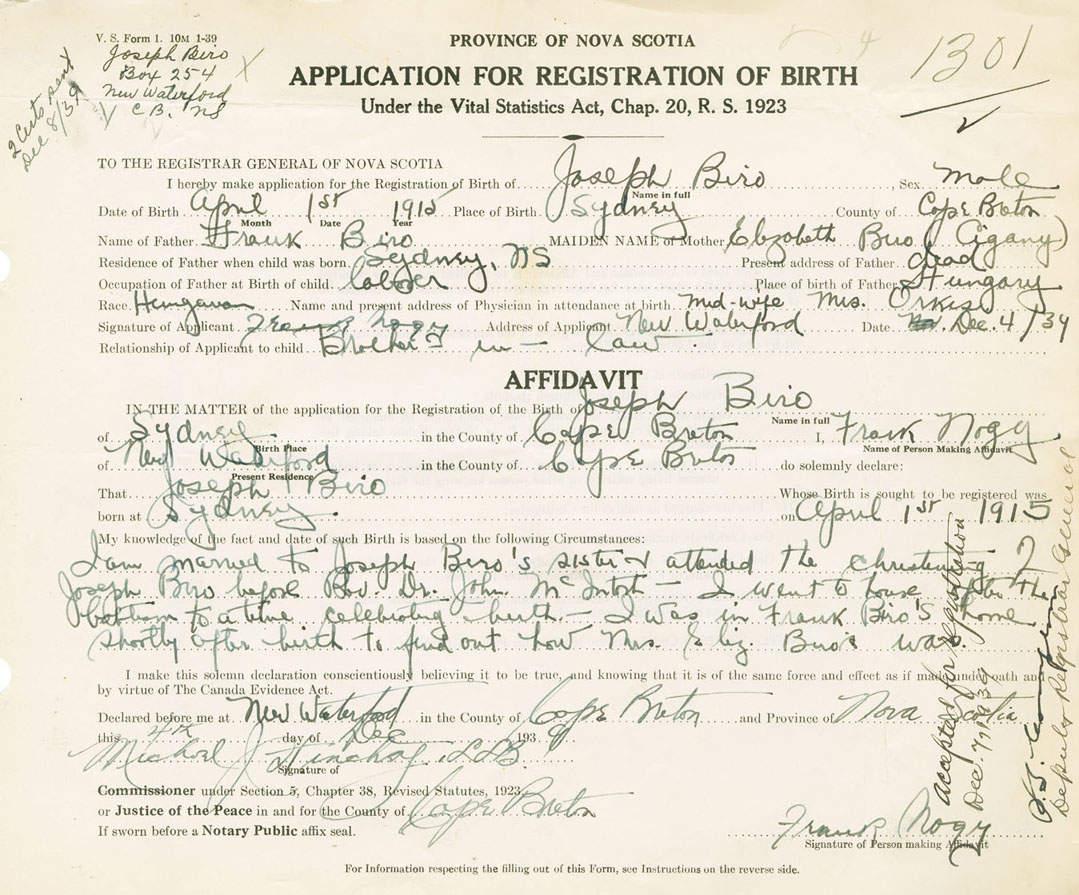 V. S. Form 1. 10M 1-39
Joseph Biro
Box 254
New Waterford
C B. NS
2 Certs sent
Dec 8/39
1301
PROVINCE OF NOVA SCOTIA
APPLICATION FOR REGISTRATION OF BIRTH
Under the Vital Statistics Act, Chap. 20, R. S. 1923
TO THE REGISTRAR GENERAL OF NOVA SCOTIA
I hereby make application for the Registration of Birth of Joseph Biro, Sex Male
Name in full
Date of Birth April 1st 1915 Place of Birth Sydney County of Cape Breton
Month Date Year
Name of Father Frank Biro MAIDEN NAME of Mother Elizabeth Biro (Cigany)
Residence of Father when child was born Sydney, NS Present address of Father dead
Occupation of Father at Birth of child. labor Place of birth of Father Hungary
Race Hungarian Name and present address of Physician in attendance at birth mid-wife Mrs. Orkis
Signature of Applicant Frank Nogy Address of Applicant New Waterford Date Dec. 4/39
Relationship of Applicant to child Brother in-law
AFFIDAVIT
IN THE MATTER of the application for the Registration of the Birth of Joseph Biro
Name in full
of Sydney in the County of Cape Breton I, Frank Nogy
Birth Place Name of Person Making Affidavit
of New Waterford in the County of Cape Breton do solemnly declare:
Present Residence
That Joseph Biro Whose Birth is sought to be registered was
born at Sydney on April 1st 1915
My knowledge of the fact and date of such Birth is based on the following Circumstances:
I am married to Joseph Biro's sister & attended the christening of
Joseph Biro before Rev. Dr. John McIntosh - I went to house after the
baptism to a time celebrating birth - I was in Frank Biro's home
shortly after birth to find out how Mrs. Eliz. Biro was.
I make this solemn declaration conscientiously believing it to be true, and knowing that it is of the same force and effect as if made under oath and
by virtue of The Canada Evidence Act.
Declared before me at New Waterford in the County of Cape Breton and Province of Nova Scotia
this 4th day of Dec 1939
Michael J. LLB.
Signature of
Commissioner under Section 5, Chapter 38, Revised Statutes, 1923
or Justice of the Peace in and for the County of Cape Breton
If sworn before a Notary Public affix seal.
Frank Nogy
Signature of Person making Affidavit
For Information respecting the filling out of this Form, see Instructions on the reverse side.
Accepted for registration
Dec. 7, 1939
Deputy Registrar General